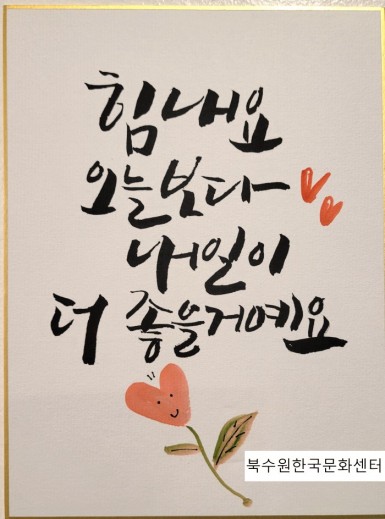 힘내요
오늘보다
내일이
더 좋을거예요
북수원한국문화센터